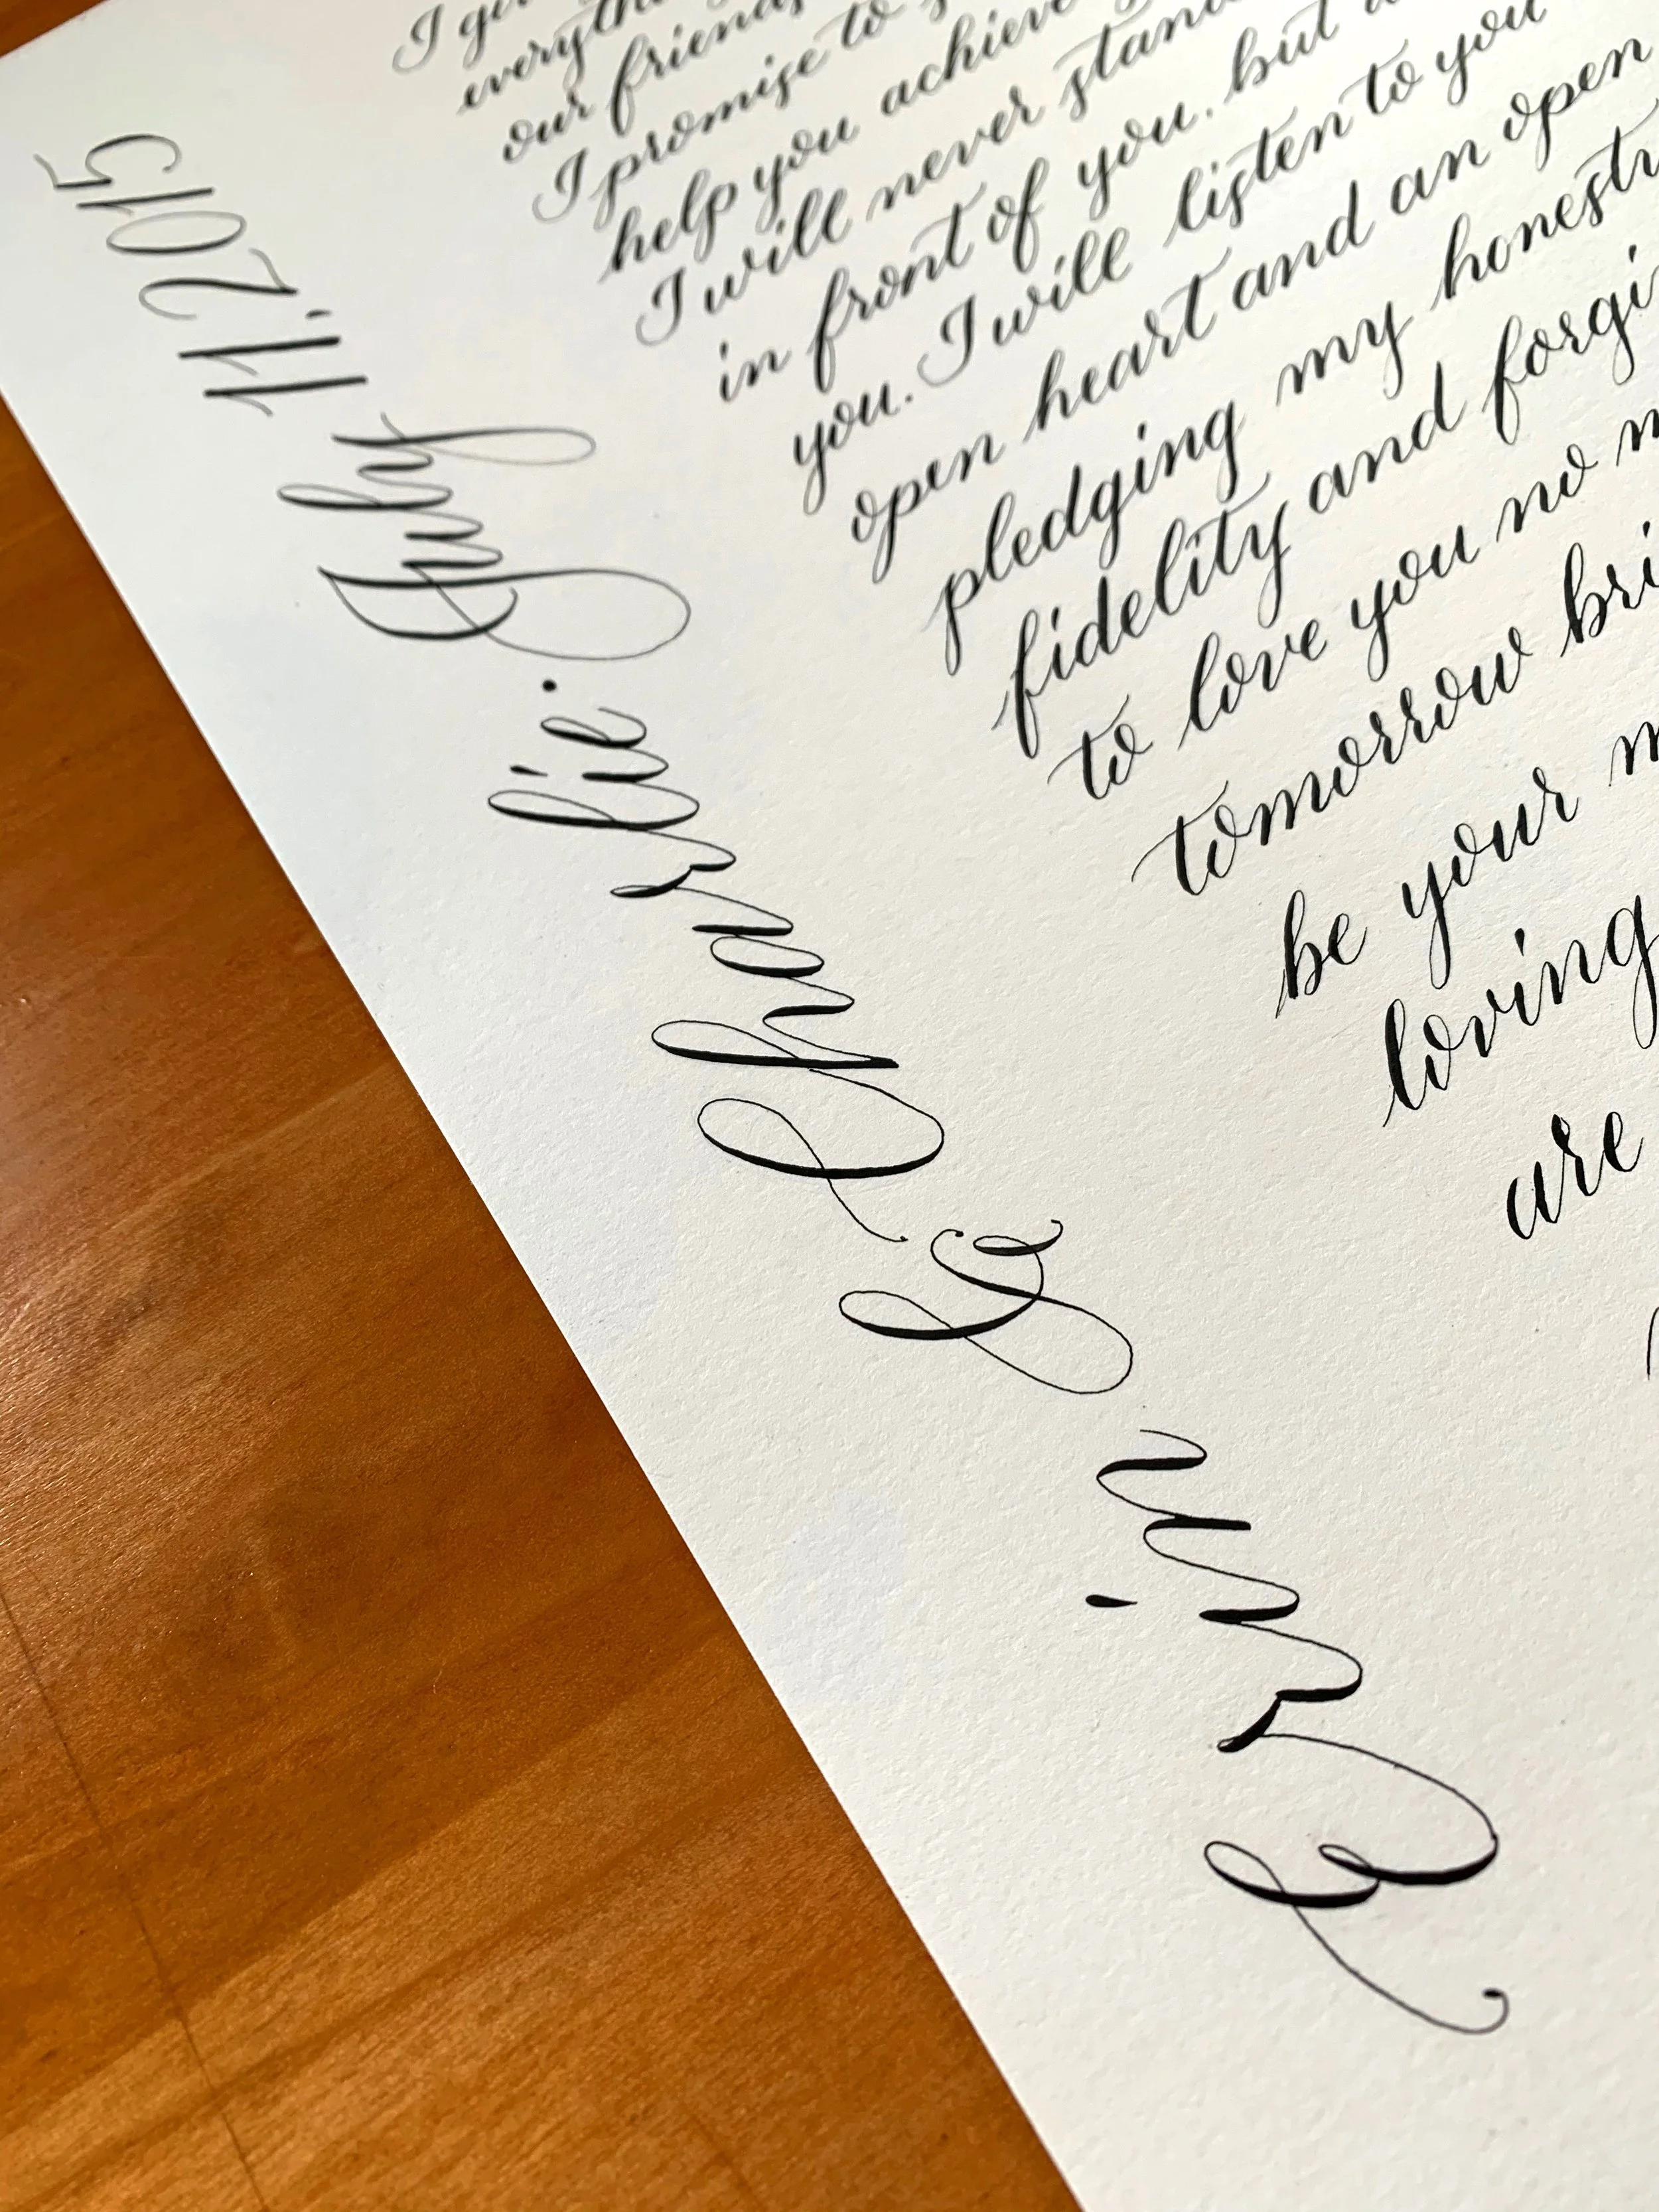 I
our
I promise to
help you achieve
I will never stand
in front of you. but
you. I will listen to you
open heart and an open
pledging my honesty
fidelity and
to love you no
tomorrow
be your
loving
are
Erin & Charlie. July 11. 2015